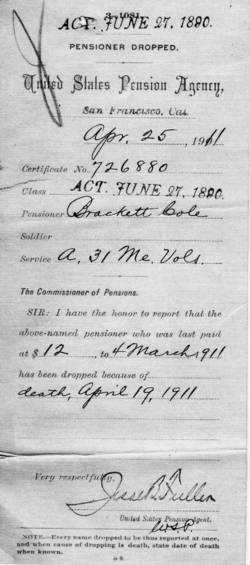 3-1081
ACT. JUNE 27, 1890.
PENSIONER DROPPED.
United States Pension Agency,
San Francisco, Cal.
Apr. 25, 1911
Certificate No. 726880
Class ACT. JUNE 27, 1890.
Pensioner Brackett Cole
Soldier
Service A. 31 Me. Vols.
The Commissioner of Pensions.
SIR: I have the honor to report that the
above-named pensioner who was last paid
at $12, to 4 March, 1911
has been dropped because of
death, April 19, 1911
Very respectfully,
Jesse B. Fuller
United States Pension Agent.
W.S.P.
NOTE.—Every name dropped to be thus reported at once,
and when cause of dropping is death, state date of death
when known.